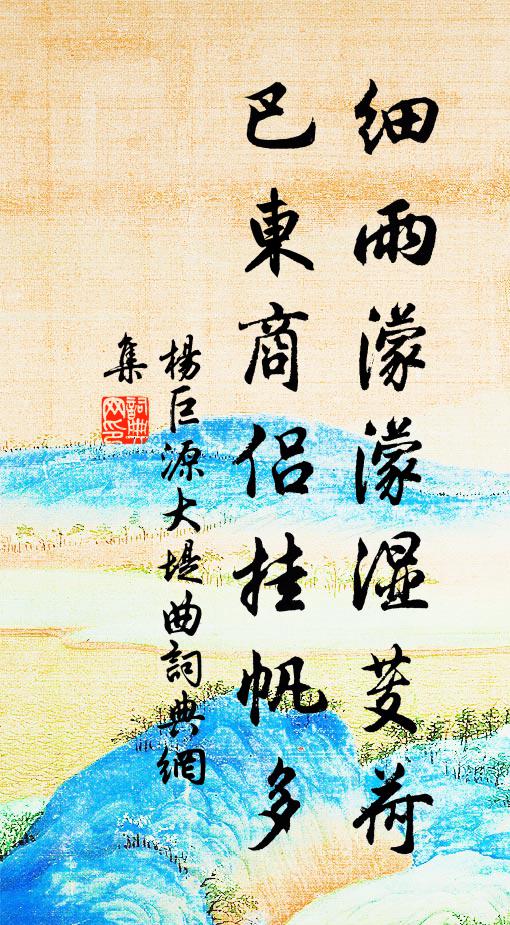 細雨濛濛湿芰荷
巴東商侶挂帆多
楊巨源大堤曲詞典網
集
詞典網印